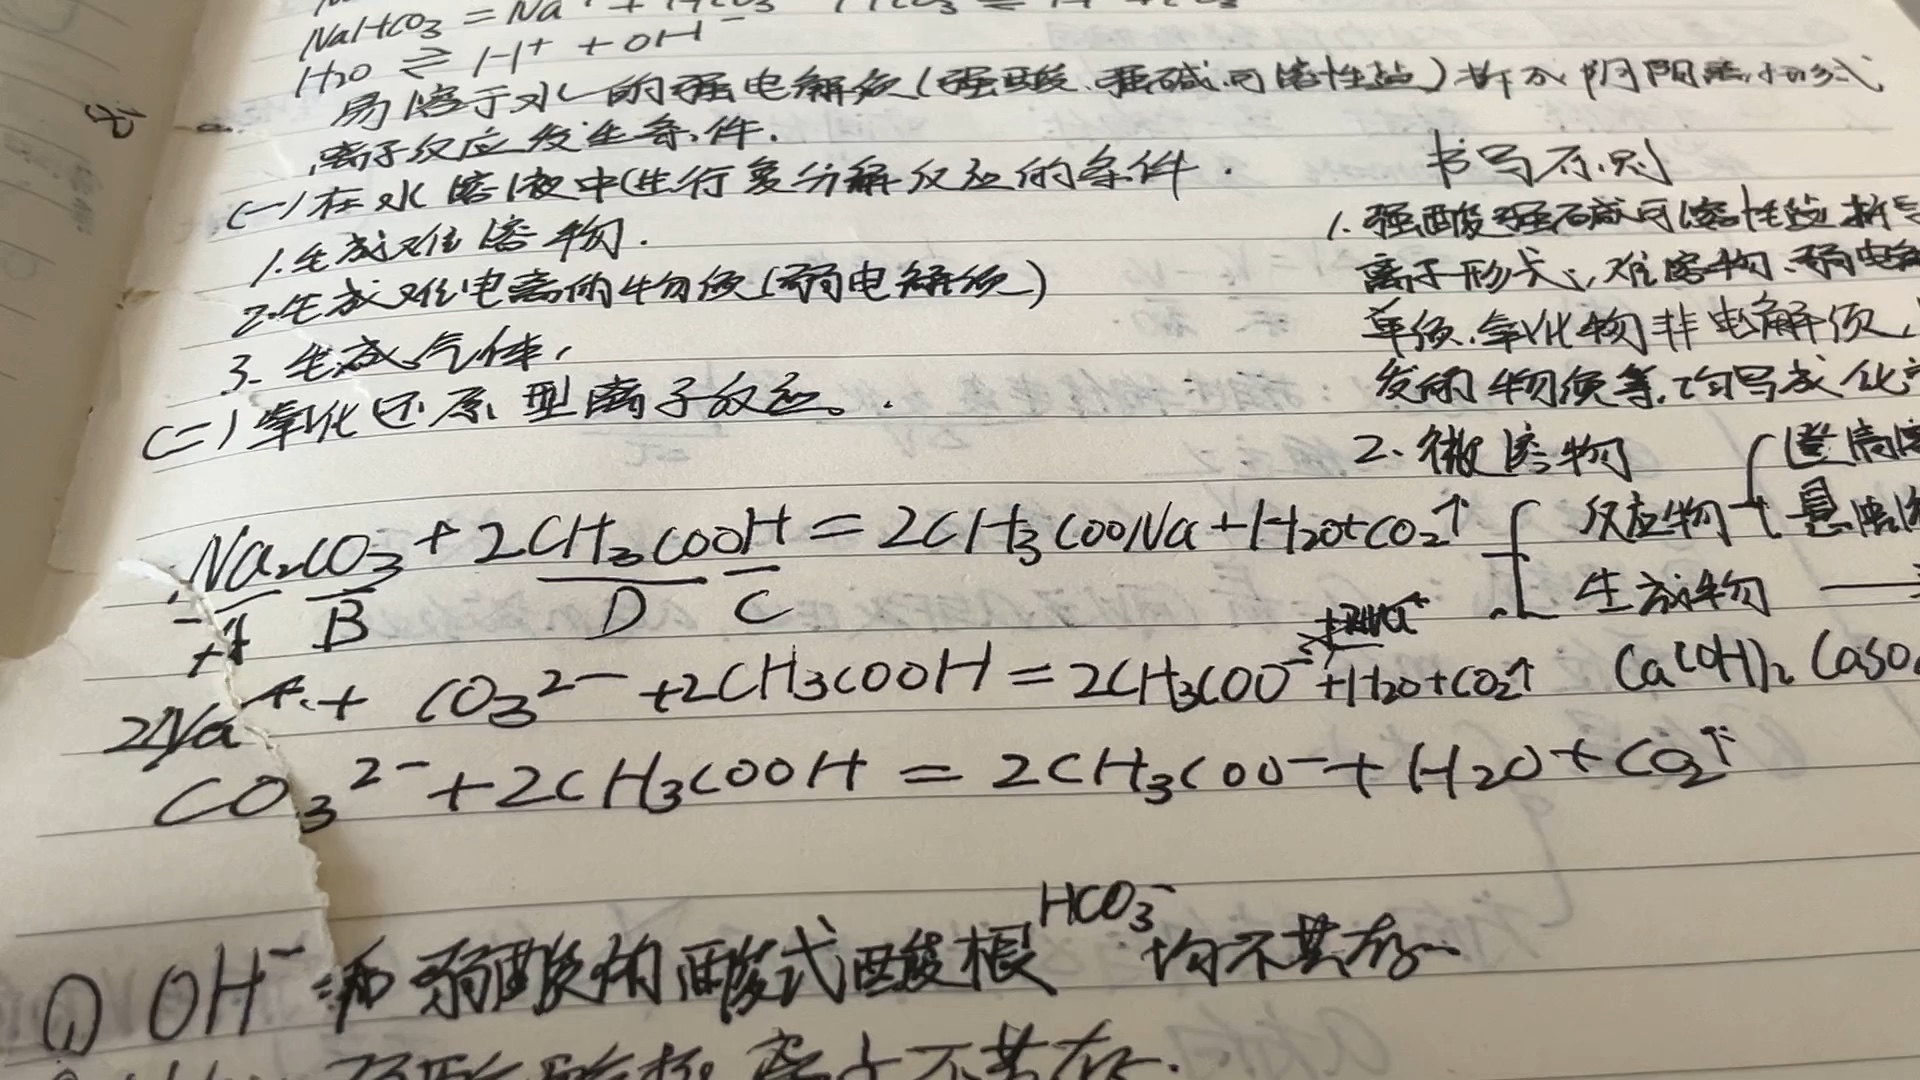 NaHCO₃ = Na⁺ + HCO₃⁻
H₂O ⇌ H⁺ + OH⁻
易溶于水的强电解质(强酸、强碱、可溶性盐)拆成阴阳离子形式
离子反应发生条件.
(一)在水溶液中进行复分解反应的条件.
1.生成难溶物.
2.生成难电离的物质(弱电解质)
3.生成气体,
(二)氧化还原型离子反应。
书写原则
1.强酸强碱可溶性盐拆
离子形式,难溶物、弱电
单质、氧化物非电解质,
发的物质等,均写成化
2.微溶物
反应物
生成物
Ca(OH)₂ CaSO₄
Na₂CO₃ + 2CH₃COOH = 2CH₃COONa + H₂O + CO₂↑
A B D C
2Na⁺ + CO₃²⁻ + 2CH₃COOH = 2CH₃COO⁻ + H₂O + CO₂↑
CO₃²⁻ + 2CH₃COOH = 2CH₃COO⁻ + H₂O + CO₂↑
HCO₃⁻
① OH⁻和弱酸的酸式酸根均不共存